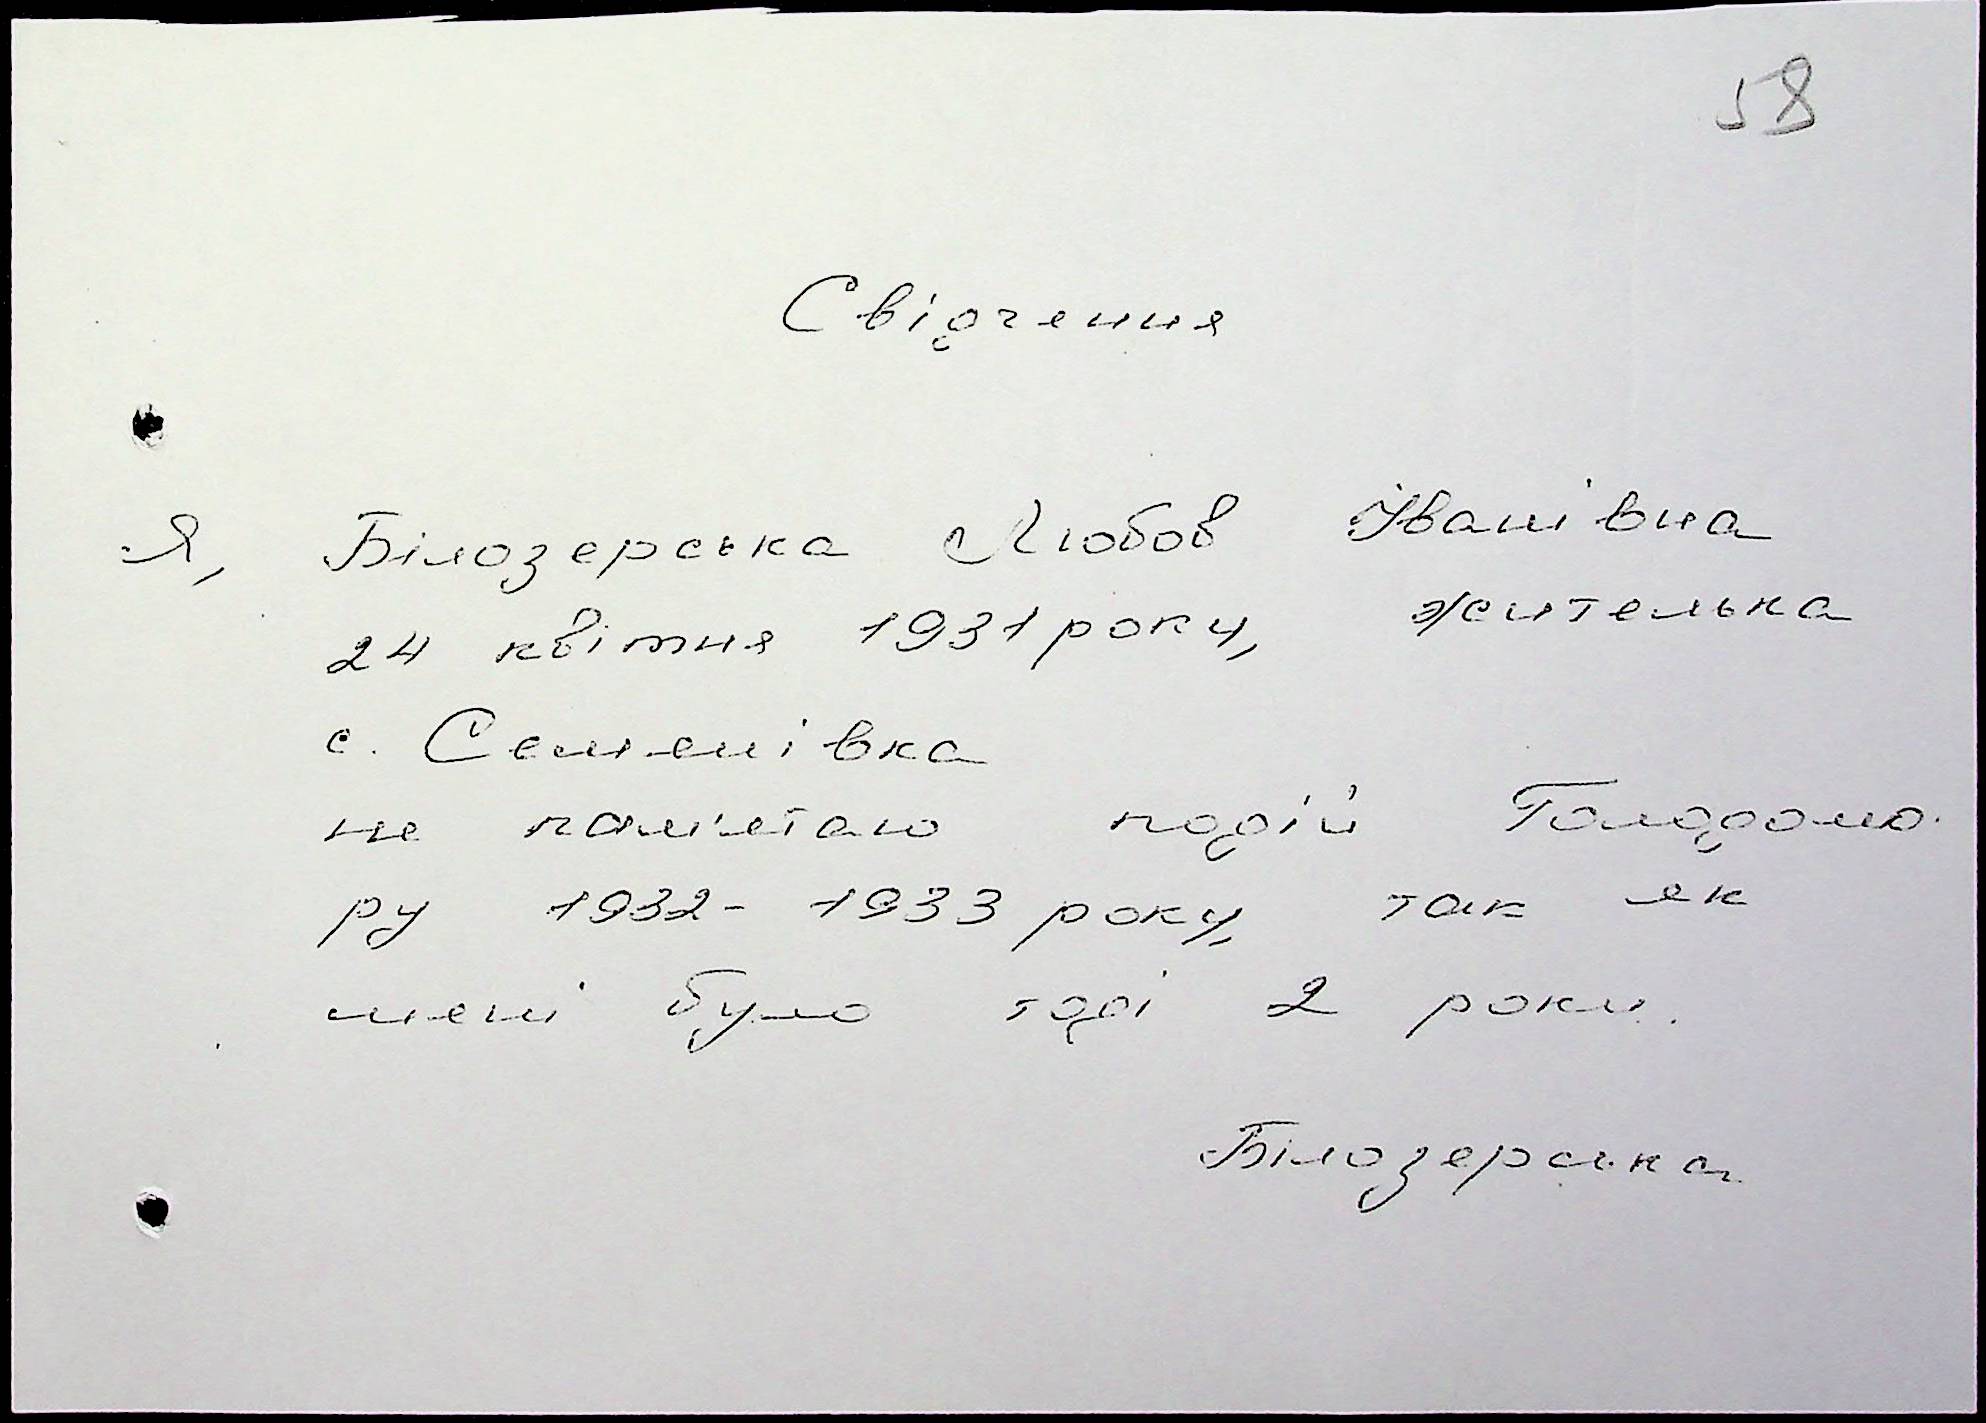 58
Свідчення
Я, Білозерська Любов Іванівна
24 квітня 1931 року, жителька
с. Семенівка
не пам'ятаю подій Голодомо-
ру 1932-1933 року, так як
мені було тоді 2 роки.
Білозерська